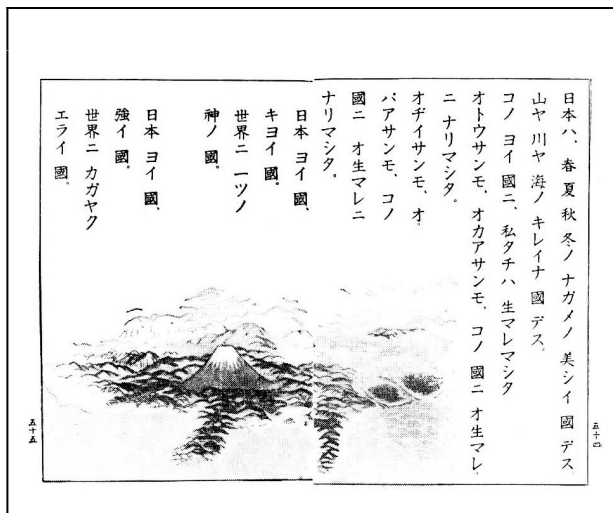 日本ハ、春夏秋冬ノ ナガメノ 美シイ 國 デス
山ヤ 川ヤ 海ノ キレイナ 國 デス、
コノ ヨイ 國ニ、私タチハ 生マレマシタ
オトウサンモ、オカアサンモ、コノ 國ニ オ生マレ
ニ ナリマシタ。
オヂイサンモ、オ
バアサンモ、コノ
國ニ オ生マレニ
ナリマシタ。
五十四
日本 ヨイ 國、
キヨイ 國。
世界ニ 一ツノ
神ノ 國。
日本 ヨイ 國、
強イ 國。
世界ニ カガヤク
エライ 國。
五十五